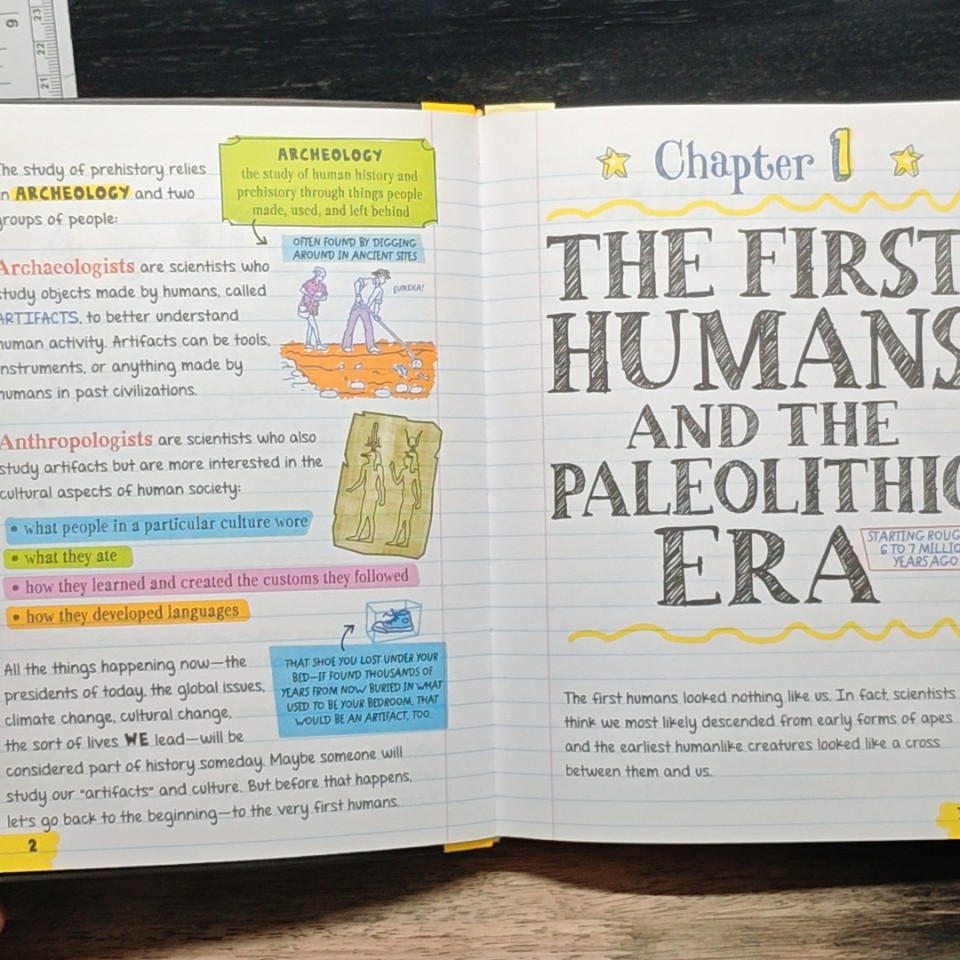 9
23
22
21
he study of prehistory relies
n ARCHEOLOGY and two
groups of people:
ARCHEOLOGY
the study of human history and
prehistory through things people
made, used, and left behind
OFTEN FOUND BY DIGGING
AROUND IN ANCIENT SITES
EUREKA!
Archaeologists are scientists who
study objects made by humans, called
ARTIFACTS, to better understand
human activity. Artifacts can be tools,
nstruments, or anything made by
humans in past civilizations.
Anthropologists are scientists who also
study artifacts but are more interested in the
cultural aspects of human society:
• what people in a particular culture wore
• what they ate
• how they learned and created the customs they followed
• how they developed languages
All the things happening now—the
presidents of today, the global issues,
climate change, cultural change,
the sort of lives WE lead—will be
considered part of history someday. Maybe someone will
study our "artifacts" and culture. But before that happens,
let's go back to the beginning—to the very first humans.
THAT SHOE YOU LOST UNDER YOUR
BED—IF FOUND THOUSANDS OF
YEARS FROM NOW BURIED IN WHAT
USED TO BE YOUR BEDROOM, THAT
WOULD BE AN ARTIFACT, TOO.
2
Chapter 1
THE FIRST
HUMANS
AND THE
PALEOLITHIC
ERA
STARTING ROUG
6 TO 7 MILLIO
YEARS AGO
The first humans looked nothing like us. In fact, scientists
think we most likely descended from early forms of apes
and the earliest humanlike creatures looked like a cross
between them and us.